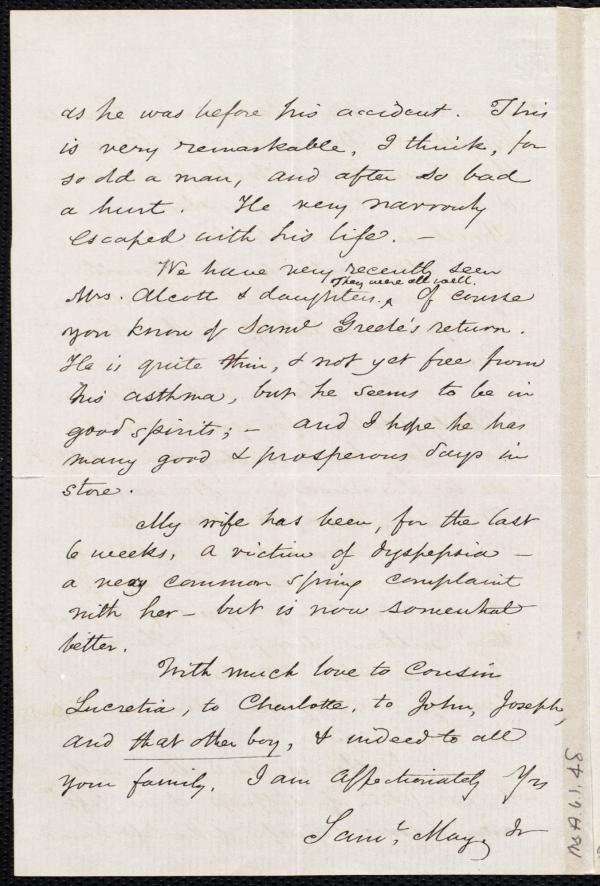 as he was before his accident. This
is very remarkable, I think, for
so old a man, and after so bad
a hurt. He very narrowly
escaped with his life. –
We have very recently seen
They were all well.
Mrs. Alcott & daughters.^ Of course
you know of Saml Greele's return.
He is quite thin, & not yet free from
his asthma, but he seems to be in
good spirits; – and I hope he has
many good & prosperous days in
store.
My wife has been, for the last
6 weeks, a victim of dyspepsia –
a very common spring complaint
with her – but is now somewhat
better.
With much love to Cousin
Lucretia, to Charlotte, to John, Joseph,
and that other boy, & indeed to all
your family, I am affectionately Yrs
Saml. May, Jr